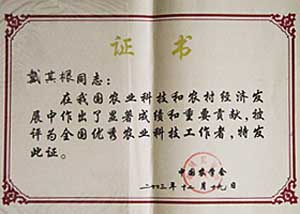 证书
戴其根同志：
在我国农业科技和农村经济发
展中作出了显著成绩和重要贡献，被
评为全国优秀农业科技工作者，特发
此证。
中国农学会
二〇〇三年十二月十九日